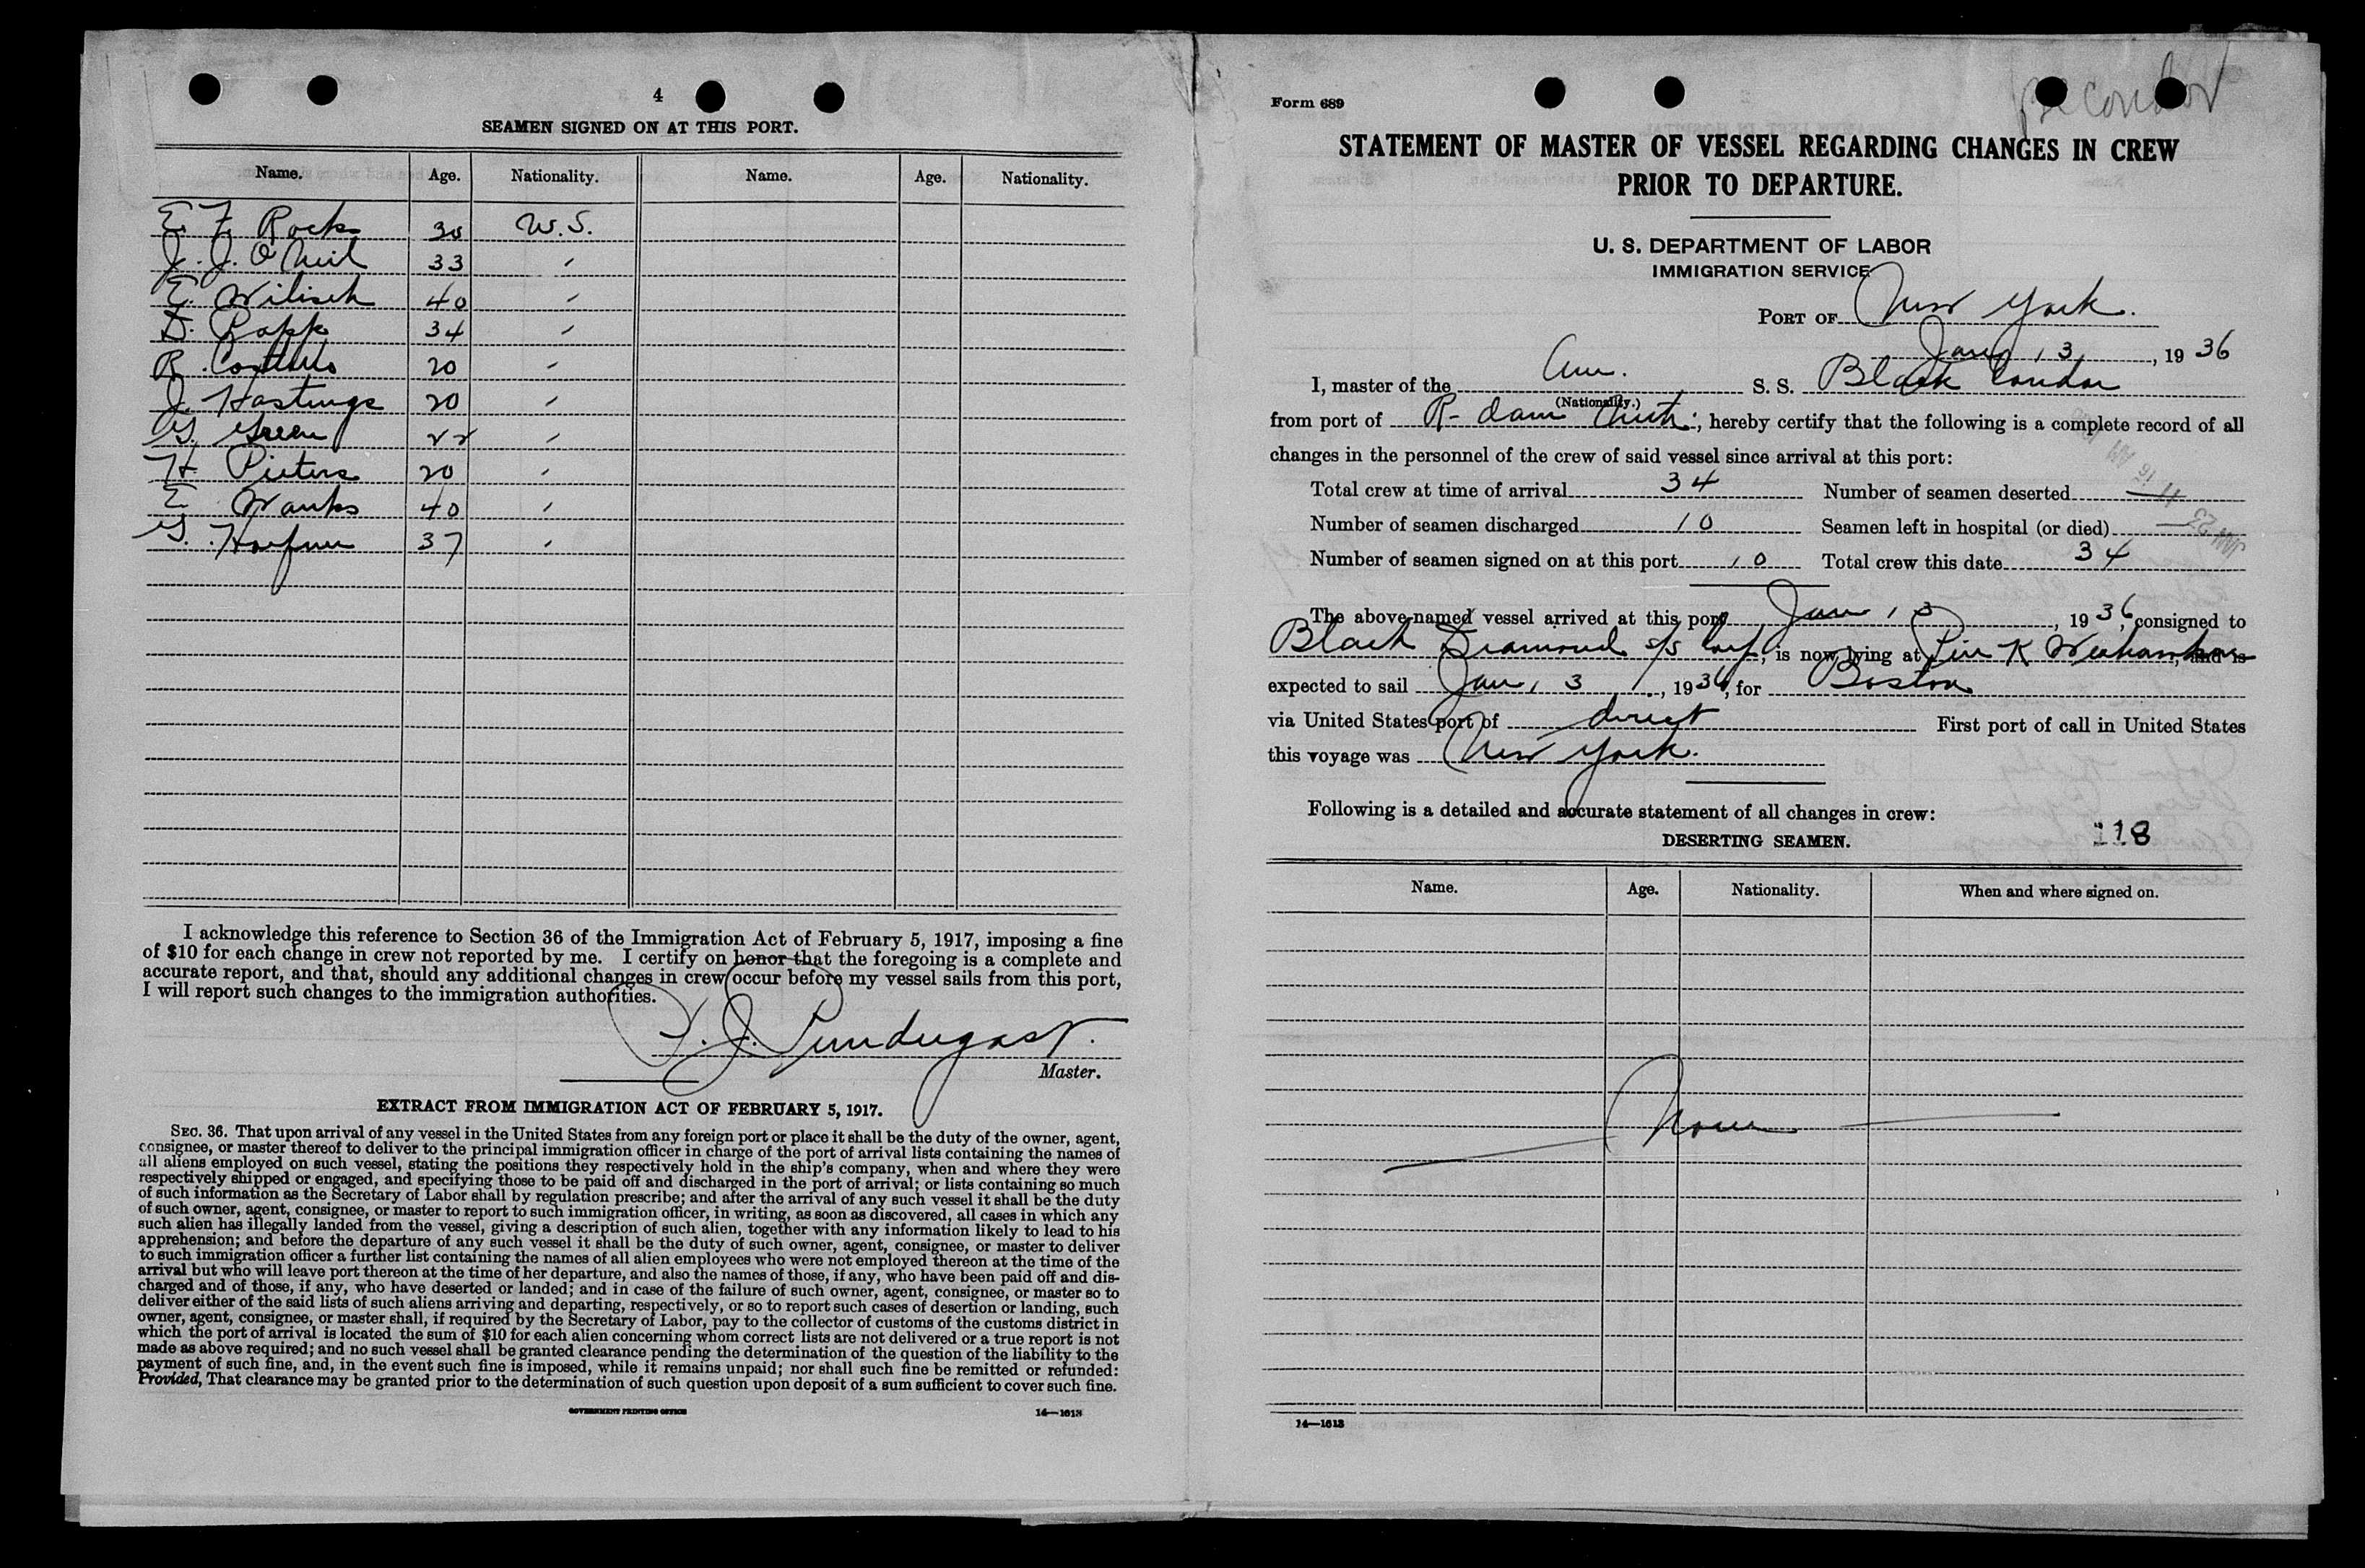 4
SEAMEN SIGNED ON AT THIS PORT.
Name. Age. Nationality. Name. Age. Nationality.
E. F. Rocks 30 U.S.
J. J. O'Neil 33 "
E. Wilisch 40 "
D. Rapp 34 "
R. Costello 20 "
J. Hastings 20 "
G. Green 22 "
H. Pieters 20 "
E. Wanks 40 "
G. 37 "
I acknowledge this reference to Section 36 of the Immigration Act of February 5, 1917, imposing a fine
of $10 for each change in crew not reported by me. I certify on honor that the foregoing is a complete and
accurate report, and that, should any additional changes in crew occur before my vessel sails from this port,
I will report such changes to the immigration authorities.
Master.
EXTRACT FROM IMMIGRATION ACT OF FEBRUARY 5, 1917.
SEC. 36. That upon arrival of any vessel in the United States from any foreign port or place it shall be the duty of the owner, agent,
consignee, or master thereof to deliver to the principal immigration officer in charge of the port of arrival lists containing the names of
all aliens employed on such vessel, stating the positions they respectively hold in the ship's company, when and where they were
respectively shipped or engaged, and specifying those to be paid off and discharged in the port of arrival; or lists containing so much
of such information as the Secretary of Labor shall by regulation prescribe; and after the arrival of any such vessel it shall be the duty
of such owner, agent, consignee, or master to report to such immigration officer, in writing, as soon as discovered, all cases in which any
such alien has illegally landed from the vessel, giving a description of such alien, together with any information likely to lead to his
apprehension; and before the departure of any such vessel it shall be the duty of such owner, agent, consignee, or master to deliver
to such immigration officer a further list containing the names of all alien employees who were not employed thereon at the time of the
arrival but who will leave port thereon at the time of her departure, and also the names of those, if any, who have been paid off and dis-
charged and of those, if any, who have deserted or landed; and in case of the failure of such owner, agent, consignee, or master so to
deliver either of the said lists of such aliens arriving and departing, respectively, or so to report such cases of desertion or landing, such
owner, agent, consignee, or master shall, if required by the Secretary of Labor, pay to the collector of customs of the customs district in
which the port of arrival is located the sum of $10 for each alien concerning whom correct lists are not delivered or a true report is not
made as above required; and no such vessel shall be granted clearance pending the determination of the question of the liability to the
payment of such fine, and, in the event such fine is imposed, while it remains unpaid; nor shall such fine be remitted or refunded:
Provided, That clearance may be granted prior to the determination of such question upon deposit of a sum sufficient to cover such fine.
GOVERNMENT PRINTING OFFICE 14—1613
Form 689
STATEMENT OF MASTER OF VESSEL REGARDING CHANGES IN CREW
PRIOR TO DEPARTURE.
U. S. DEPARTMENT OF LABOR
IMMIGRATION SERVICE
PORT OF New York.
Jan 13, 1936
I, master of the Am. S. S. Black Condor
(Nationality.)
from port of R-dam ; hereby certify that the following is a complete record of all
changes in the personnel of the crew of said vessel since arrival at this port:
Total crew at time of arrival 34 Number of seamen deserted —
Number of seamen discharged 10 Seamen left in hospital (or died) —
Number of seamen signed on at this port 10 Total crew this date 34
The above-named vessel arrived at this port Jan 13, 1936, consigned to
Black Diamond S/S , is now lying at Pier K Weehawken, and is
expected to sail Jan 13, 1936, for Boston
via United States port of direct First port of call in United States
this voyage was New York.
Following is a detailed and accurate statement of all changes in crew:
DESERTING SEAMEN. 118
Name. Age. Nationality. When and where signed on.
None
14—1613